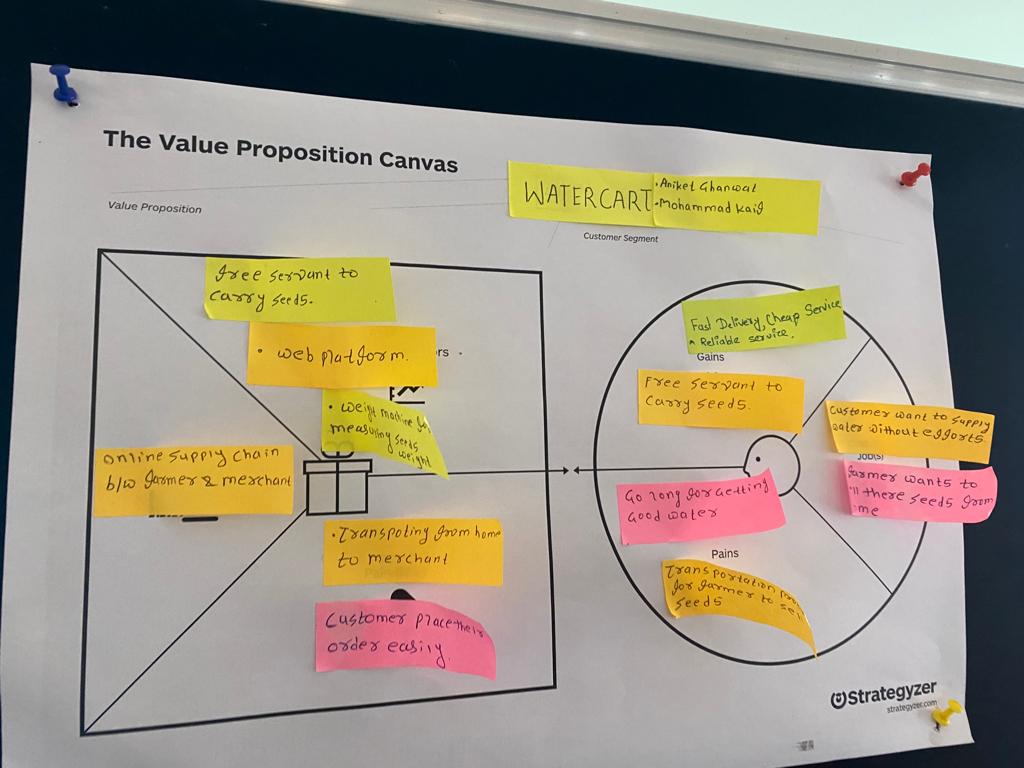 The Value Proposition Canvas
Value Proposition
WATERCART
• Aniket Ghanwat
• Mohammad Kaif
Customer Segment
free servant to
carry seeds.
• web platform.
rs
• weight machine for
measuring seeds
weight
online supply chain
b/w farmer & merchant
• Transpoting from home
to merchant
Customer place their
order easily.
Fast Delivery, Cheap Service
Reliable service.
Gains
Free servant to
Carry seeds.
Customer want to supply
water without efforts.
Job(s)
farmer wants to
ll there seeds from
me
Go long for getting
Good water
Pains
Transportation
for farmer to
seeds
Strategyzer
strategyzer.com